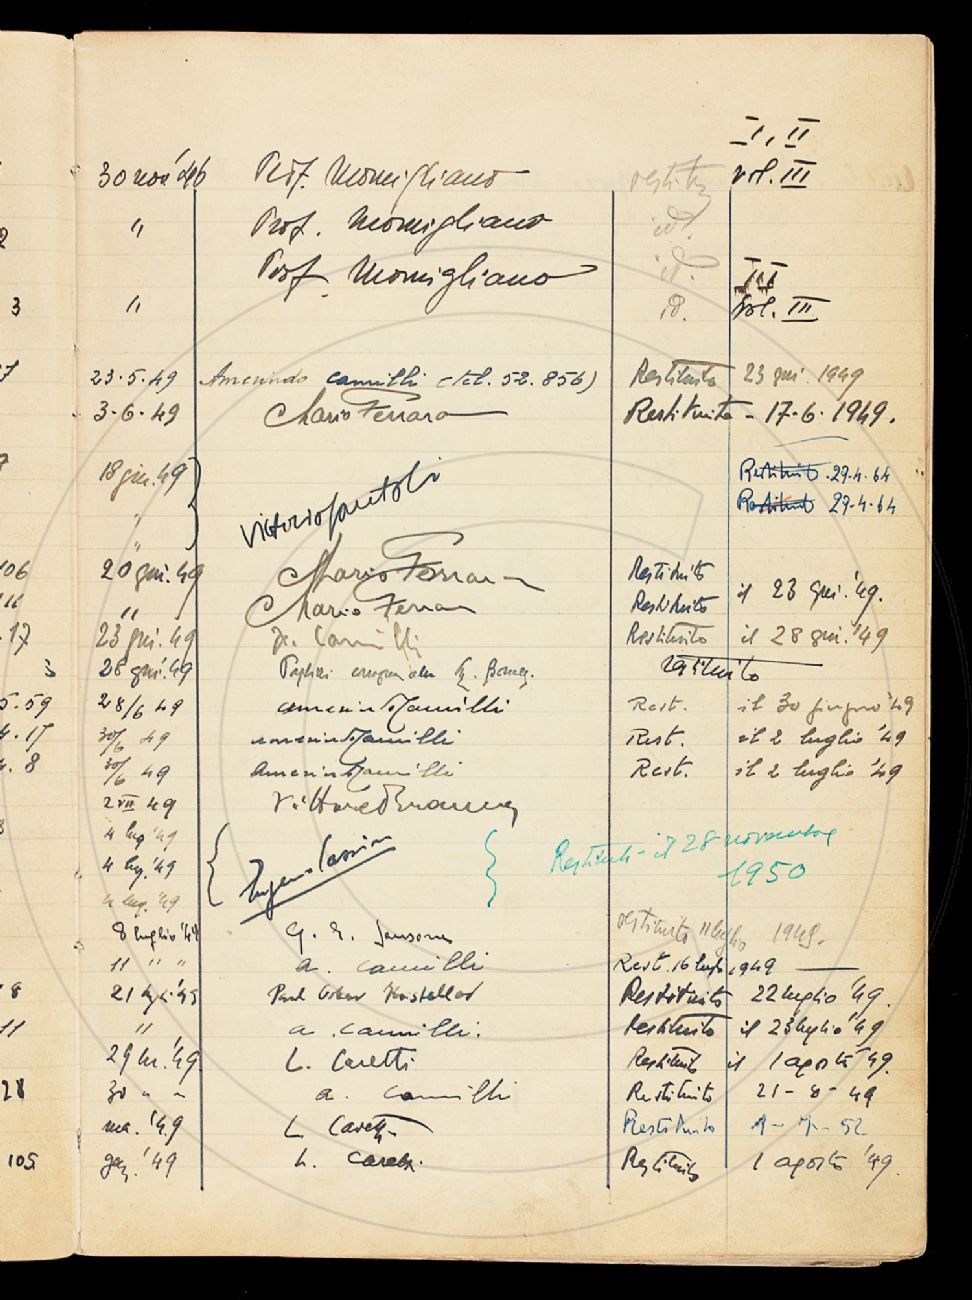 I, II
30 nov '46 Prof. Momigliano restit. vol. III
" Prof. Momigliano id.
Prof. Momigliano id. III
3 " id. vol. III
7 23.5.49 Amerindo Camilli (tel. 52.856) Restituito 23 giu. 1949
3.6.49 Mario Ferrara Restituito - 17.6.1949.
18 giu. 49 Restituito 29.4.64
" Vittorio Santoli Restituito 29.4.64
"
106 20 giu. 49 Mario Ferrara Restituito
il 23 giu. '49.
" Mario Ferrara Restituito
.17 23 giu. '49 Camilli Restituito il 28 giu. '49
3 28 giu. '49 restituito
5.59 28/6 49 Amerindo Camilli Rest. il 30 giugno '49
4.17 30/6 49 Amerindo Camilli Rest. il 2 luglio '49
8 30/6 49 Amerindo Camilli Rest. il 2 luglio '49
2 VII 49 Vittore Branca
4 lug '49
4 lug. '49 Restituito il 28 novembre
1950
4 lug. '49
8 luglio '49 restituito 11 luglio 1949.
11 " " a. Camilli Rest. 16 luglio 1949
8 21 Paul Oskar Kristeller Restituito 22 luglio '49.
11 " a. Camilli. Restituito il 23 luglio '49
29 '49. L. Caretti Restituito il 1 agosto '49.
28 30 " " a. Camilli Restituito 21-8-49
'49 L. Caretti Restituito 52
105 '49 L. Caretti. Restituito 1 agosto '49.